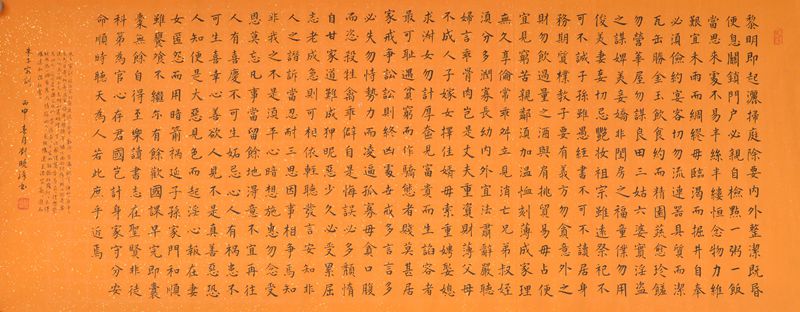 黎明即起灑掃庭除要内外整潔既昏
便息關鎖門户必親自檢點一粥一飯
當思來處不易半絲半縷恒念物力維
艱宜未雨而綢繆毋臨渴而掘井自奉
必須儉約宴客切勿流連器具質而潔
瓦缶勝金玉飲食約而精園蔬愈珍饈
勿營華屋勿謀良田三姑六婆實淫盜
之媒婢美妾嬌非閨房之福童僕勿用
俊美妻妾切忌艷妝祖宗雖遠祭祀不
可不誠子孫雖愚經書不可不讀居身
務期質樸教子要有義方勿貪意外之
財勿飲過量之酒與肩挑貿易毋占便
宜見窮苦親鄰須加温恤刻薄成家理
無久享倫常乖舛立見消亡兄弟叔姪
須分多潤寡長幼内外宜法肅辭嚴聽
婦言乖骨肉豈是丈夫重資財薄父母
不成人子嫁女擇佳婿毋索重聘娶媳
求淑女勿計厚奩見富貴而生諂容者
最可恥遇貧窮而作驕態者賤莫甚居
家戒爭訟訟則終凶處世戒多言言多
必失勿恃勢力而凌逼孤寡毋貪口腹
而恣殺牲禽乖僻自是悔誤必多頹惰
自甘家道難成狎昵惡少久必受累屈
志老成急則可相依輕聽發言安知非
人之譖訴當忍耐三思因事相爭焉知
非我之不是須平心暗想施惠勿念受
恩莫忘凡事當留餘地得意不宜再往
人有喜慶不可生妒忌心人有禍患不
可生喜幸心善欲人見不是真善惡恐
人知便是大惡見色而起淫心報在妻
女匿怨而用暗箭禍延子孫家門和順
雖饔飧不繼亦有餘歡國課早完即囊
橐無餘自得至樂讀書志在聖賢非徒
科第為官心存君國豈計身家守分安
命順時聽天為人若此庶乎近焉
朱子家訓
丙申春月劉